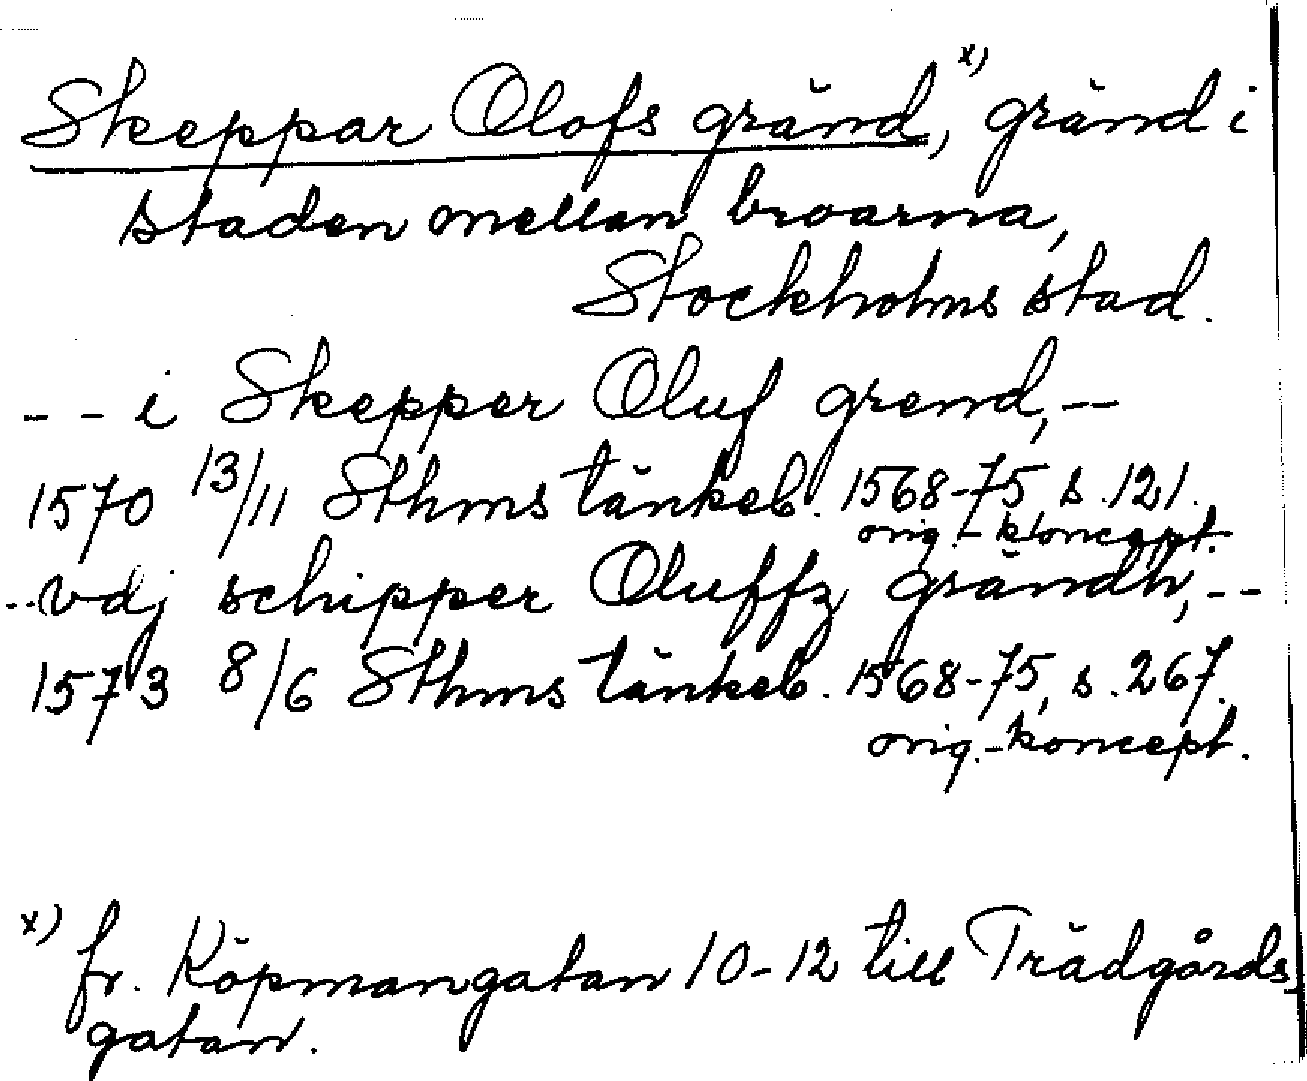 Skeppar Olofs gränd,ˣ⁾ gränd i
staden mellan broarna,
Stockholms stad.
-- i Skepper Oluf grend,--
1570 13/11 Sthms tänkeb. 1568-75, s. 121.
orig.-koncept.
-- vdj schipper Oluffz grändh,--
1573 8/6 Sthms tänkeb. 1568-75, s. 267.
orig.-koncept.
x) fr. Köpmangatan 10-12 till Trädgårds-
gatan.